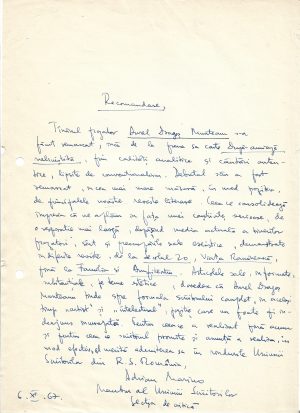 Recomandare,
Tînărul prozator Aurel Dragoș Munteanu s-a
făcut remarcat, încă de la prima sa carte După-amiază
neliniștită, prin calități analitice și căutări auten-
tice, lipsite de convenționalism. Debutul său a fost
remarcat, în cea mai mare măsură, în mod pozitiv,
de principalele noastre reviste literare. Ceea ce consolidează
impresia că ne aflăm în fața unei conștiințe serioase, de
o respirație mai largă, depășind media actuală a tinerilor
prozatori, sînt și preocupările sale eseistice, demonstrate
în diferite reviste, de la Secolul 20, Viața Românească,
pînă la Familia și Amfiteatru. Articolele sale, informate,
substanțiale, pe teme estetice, dovedesc că Aurel Dragoș
Munteanu tinde spre formula scriitorului complet, în același
timp "artist" și "intelectual", poziție care nu poate fi
îndeajuns încurajată. Pentru ceea ce a realizat pînă acum
și pentru ceea ce scriitorul promite și anunță a realiza, în
mod efectiv, el merită admiterea sa în rîndurile Uniunii
Scriitorilor din R.S. România.
Adrian Marino
Membru al Uniunii Scriitorilor
Secția de critică
6. XI. 67.